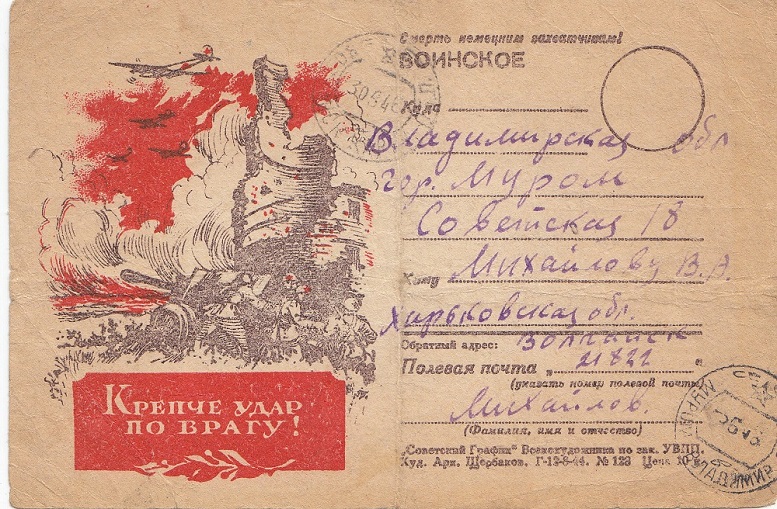 Крепче удар
по врагу!
Смерть немецким захватчикам!
ВОИНСКОЕ
Куда
Владимирская обл
гор. Муром
Советская 18
Кому Михайлову В.А.
Харьковская обл.
Обратный адрес: Волчанск
Полевая почта „ 21822 "
(указать номер полевой почты)
Михайлов.
(Фамилия, имя и отчество)
„Советский График" Всекохудожника по зак. УВПП.
Худ. Арк. Щербаков. Г-12-8-44. № 123 Цена 10 к.